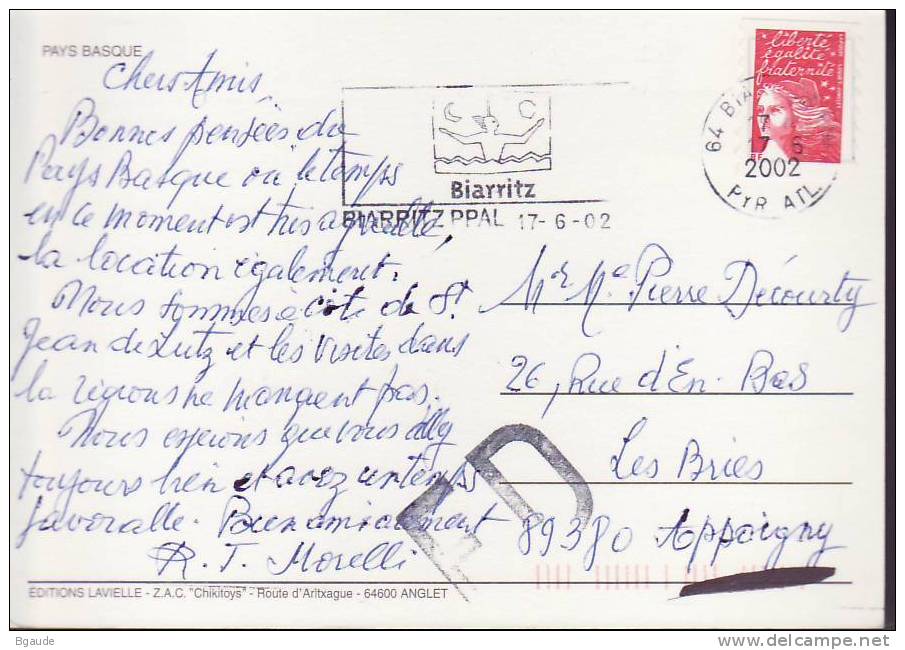 PAYS BASQUE
Chers Amis
Bonnes pensées du
Pays Basque où le temps
en ce moment est très agréable,
la location également.
Nous sommes à côté de St
Jean de Lutz et les visites dans
la région ne manquent pas.
Nous espérons que vous allez
toujours bien et avez un temps
favorable. Bien amicalement
R. T. Morelli
EDITIONS LAVIELLE - Z.A.C. "Chikitoys" - Route d'Aritxague - 64600 ANGLET
Biarritz
BIARRITZ PPAL 17-6-02
liberté
égalité
fraternité
RF
64 BIA
17
17 6
2002
PYR ATL
Mr Me Pierre Décourty
26, Rue d'En-Bas
Les Bries
89380 Appoigny
Bgaude
delcampe.net